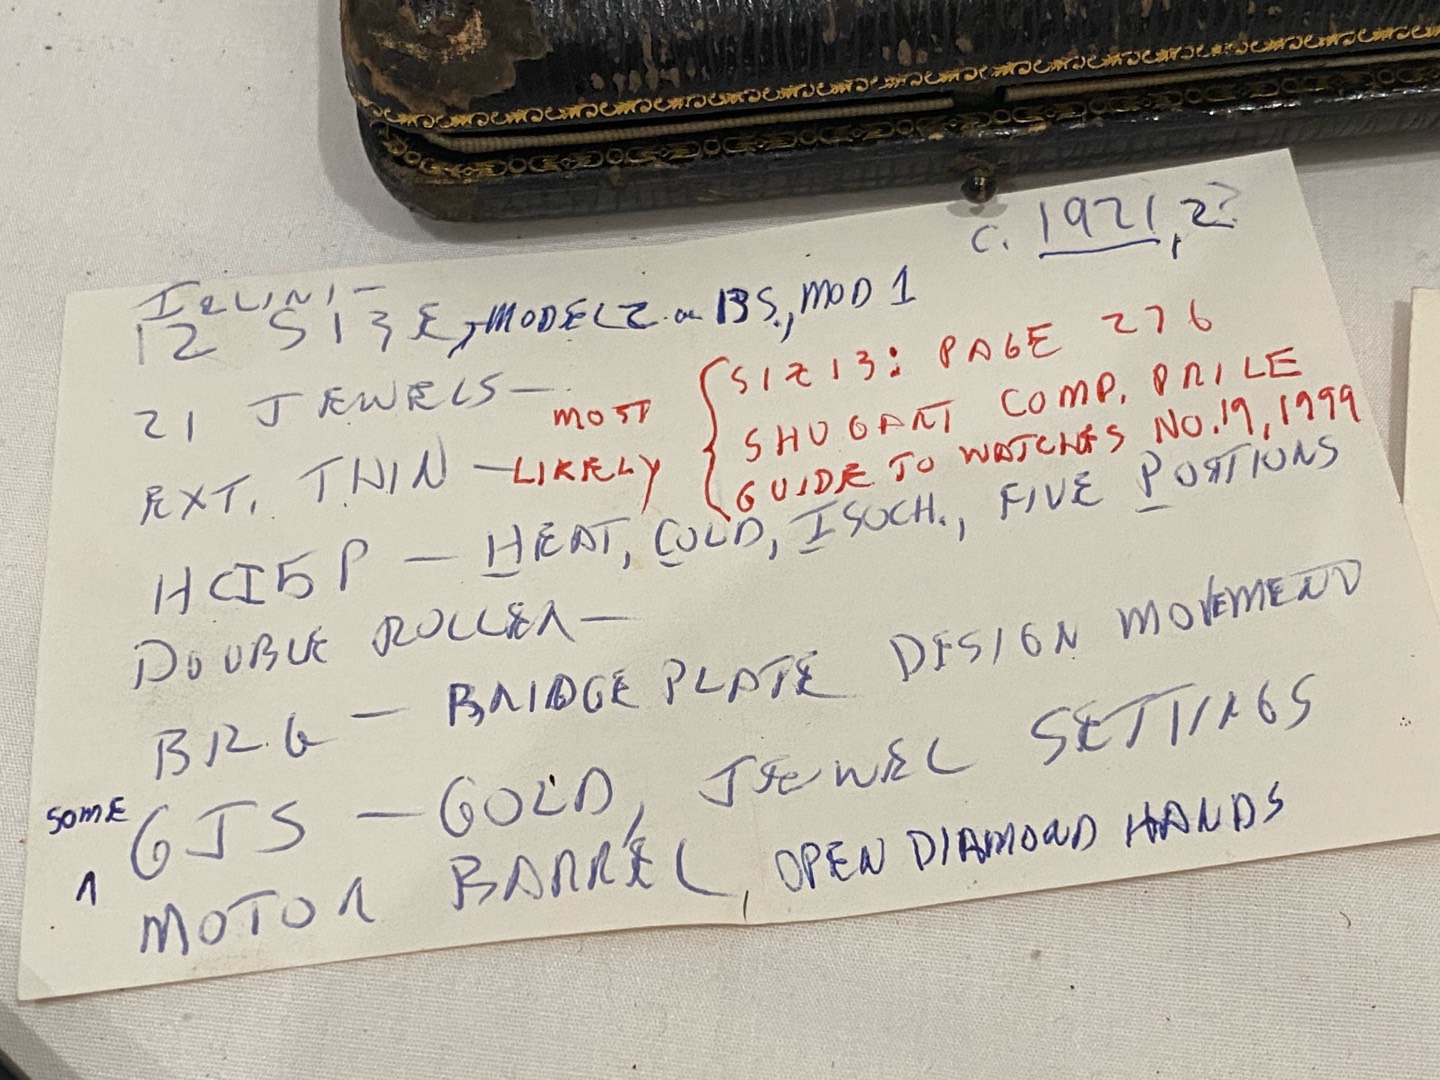 c. 1921, 2?
ILLINI-
12 SIZE, MODEL 2 or 13S., MOD 1
21 JEWELS—
EXT. THIN — MOST LIKELY { SIZ 13: PAGE 276
SHUGART COMP. PRICE
GUIDE TO WATCHES NO. 19, 1999
HCI5P — HEAT, COLD, ISOCH., FIVE POSITIONS
DOUBLE ROLLER—
BRG — BRIDGE PLATE DESIGN MOVEMENT
SOME GJS — GOLD, JEWEL SETTINGS
MOTOR BARREL, OPEN DIAMOND HANDS